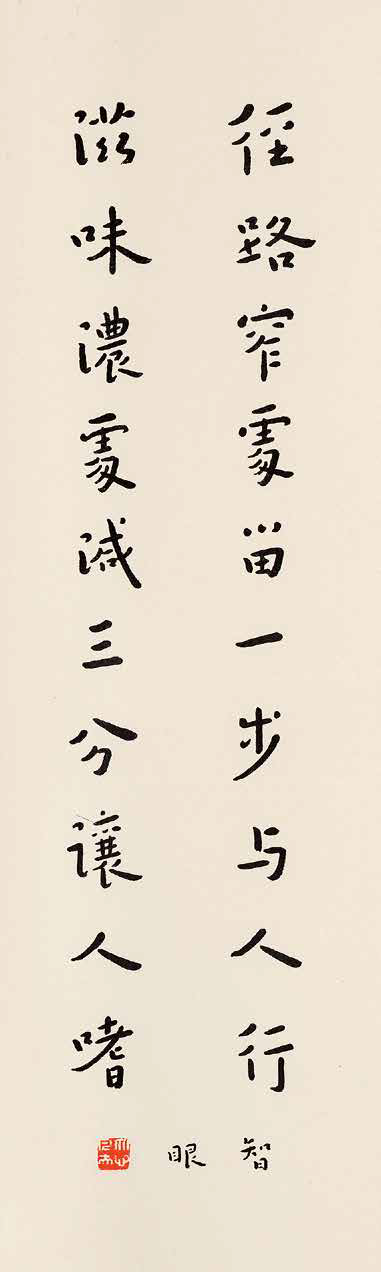 径路窄處畱一步与人行
滋味濃處减三分讓人嗜
智眼